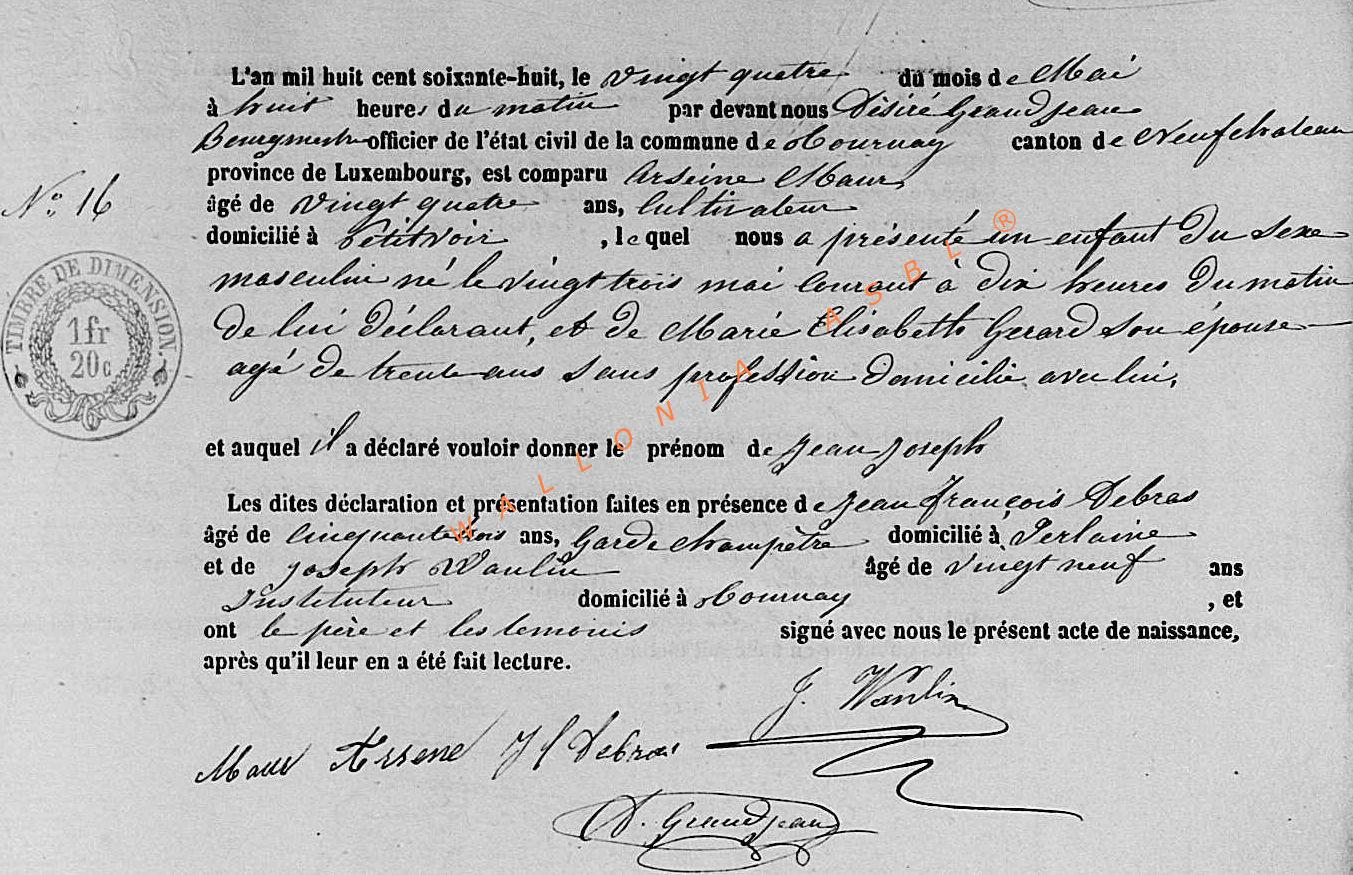 L'an mil huit cent soixante-huit, le vingt quatre du mois de Mai
à huit heures du matin par devant nous Désiré Grandjean
Bourgmestre officier de l'état civil de la commune de Tournay canton de Neufchateau
province de Luxembourg, est comparu Arseine Maur
N° 16
âgé de vingt quatre ans, Cultivateur
domicilié à Petitvoir, lequel nous a présenté un enfant du sexe
masculin né le vingt trois mai courant à dix heures du matin
de lui déclarant, et de Marie Elisabeth Gerard son épouse
agé de trente ans sans profession domicilié avec lui,
TIMBRE DE DIMENSION.
1fr
20c
et auquel il a déclaré vouloir donner le prénom de Jean Joseph
Les dites déclaration et présentation faites en présence de Jean François Debras
âgé de cinquante trois ans, Garde champètre domicilié à Verlaine
et de Joseph Wanlin âgé de vingt neuf ans
Instituteur domicilié à Tournay, et
ont le père et les temoins signé avec nous le présent acte de naissance,
après qu'il leur en a été fait lecture.
J. Wanlin
Maur Arsene J f Debras
D. Grandjean
WALLONIA ASBL ®